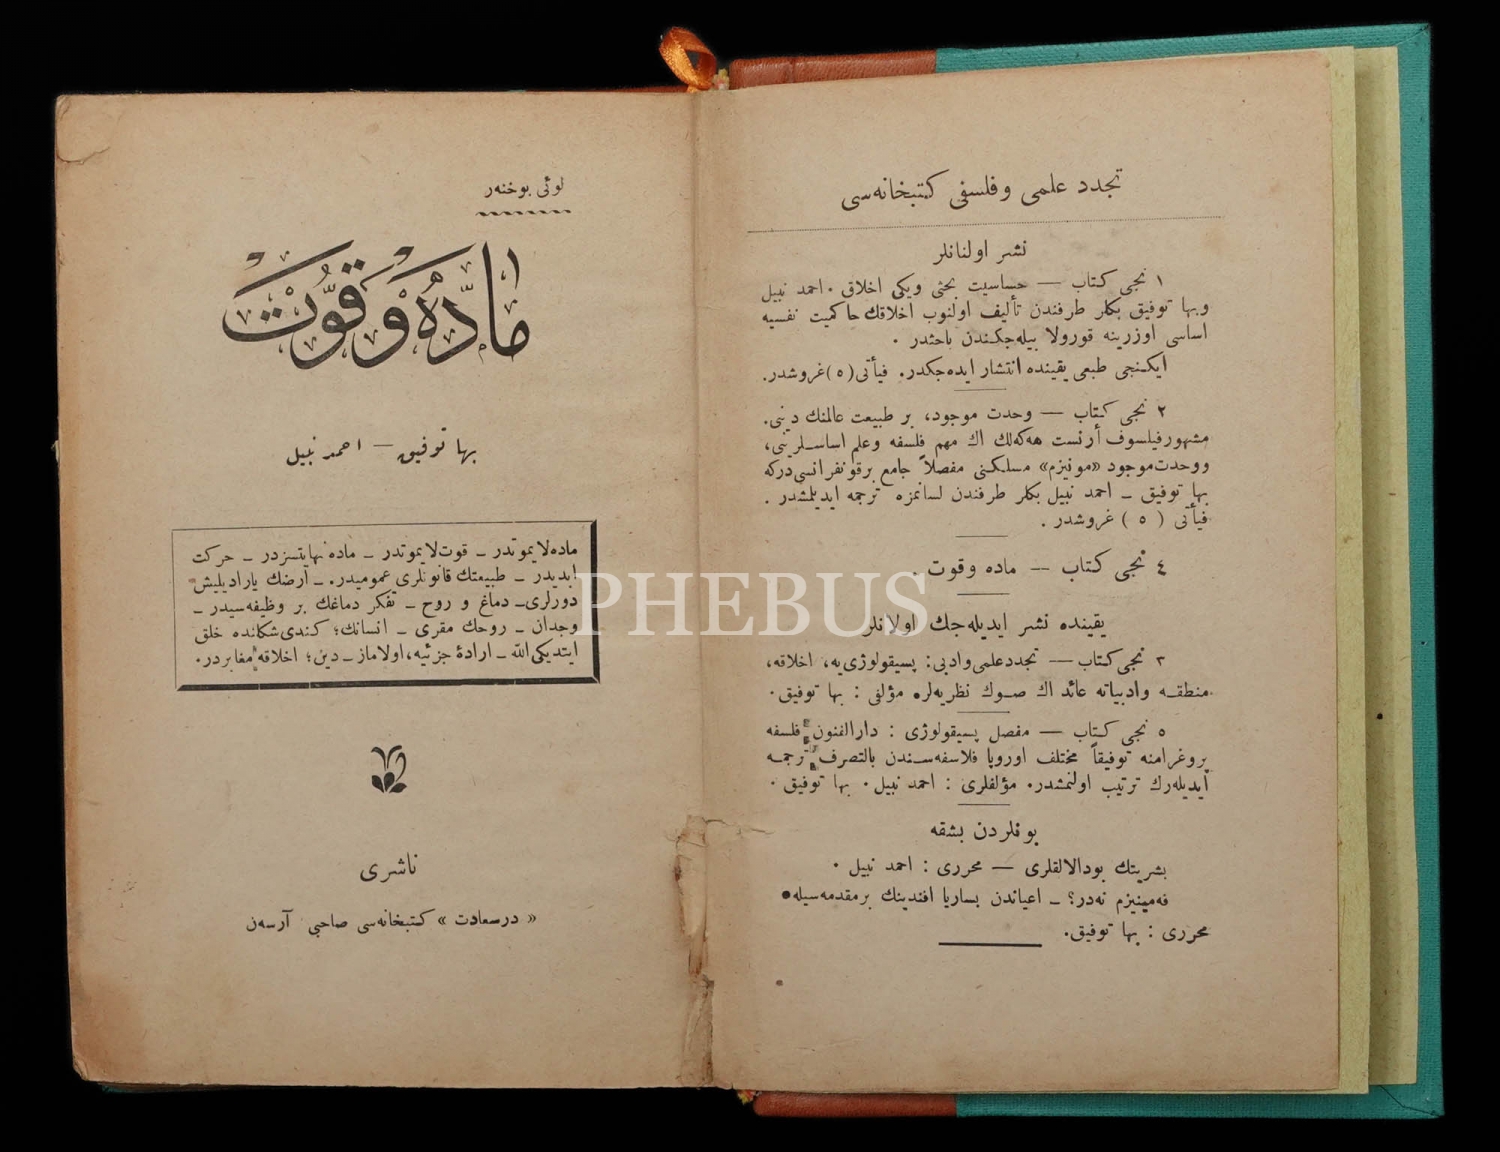 تجدد علمی و فلسفی کتبخانه‌سی
نشر اولنانلر
١ نجی کتاب — حساسیت بحثی ویکی اخلاق . احمد نبیل
وبها توفیق بکلر طرفندن تألیف اولنوب اخلاقك حاکمیت نفسیه
اساسی اوزرینه قورولا بیله‌جکندن باحثدر .
ایکنجی طبعی یقینده انتشار ایده‌جکدر. فیأتی (٥) غروشدر.
٢ نجی کتاب — وحدت موجود، بر طبیعت عالمنك دینی.
مشهورفیلسوف أرنست هه‌که‌لك اك مهم فلسفه وعلم اساسلرینی،
ووحدت‌موجود «مونیزم» مسلکنی مفصلاً جامع برقونفرانسی‌درکه
بها توفیق ـ احمد نبیل بکلر طرفندن لسانمزه ترجمه ایدیلمشدر .
فیأتی ( ٥ ) غروشدر .
٤ نجی کتاب — ماده وقوت .
یقینده نشر ایدیله‌جك اولانلر
٣ نجی کتاب — تجددعلمی‌وادبی: پسیقولوژی‌یه، اخلاقه،
منطقه وادبیاته عائد اك صوك نظریه‌لره مؤلفی : بها توفیق.
٥ نجی کتاب — مفصل پسیقولوژی : دارالفنون فلسفه
پروغرامنه توفیقاً مختلف اوروپا فلاسفه‌سندن بالتصرف ترجمه
ایدیله‌رك ترتیب اولنمشدر. مؤلفلری : احمد نبیل . بها توفیق .
بونلردن بشقه
بشریتك بودالالقلری — محرری : احمد نبیل .
فه‌مینیزم نه‌در؟ ـ اعیاندن بساریا افندینك برمقدمه‌سیله.
محرری : بها توفیق.
لوئی بوخنه‌ر
مادّه وقوّت
بها توفیق — احمد نبیل
ماده‌لایموتدر ـ قوت‌لایموتدر ـ ماده‌نهایتسزدر ـ حرکت
ابدیدر ـ طبیعتك قانونلری عمومیدر. ـ ارضك یارادیلیش
دورلری ـ دماغ و روح ـ تفکر دماغك بر وظیفه‌سیدر ـ
وجدان ـ روحك مقری ـ انسانك؛ کندی‌شکلنده خلق
ایتدیکی‌الله ـ ارادۀ جزئیه، اولاماز ـ دین؛ اخلاقه مغایردر.
ناشری
« درسعادت » کتبخانه‌سی صاحبی آرسه‌ن
PHEBUS